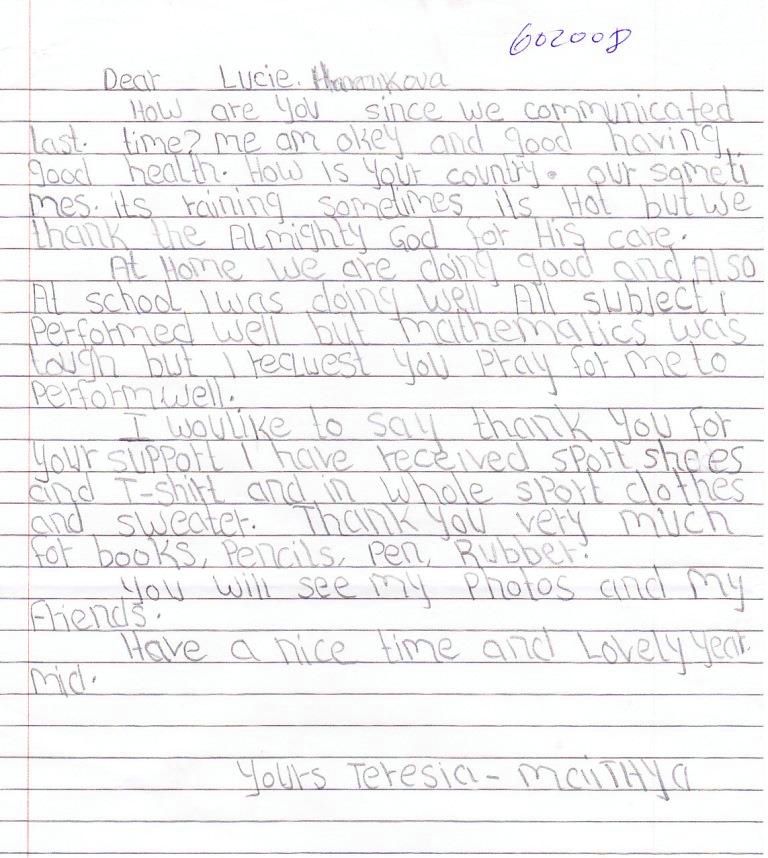 602008
Dear Lucie. Hammikova
How are you since we communicated
last. time? me am okey and good having
good health. How is your country. our someti
mes. its raining sometimes its Hot but we
thank the Almighty God for His care.
At Home we are doing good and Also
At school i was doing well All subject i
Performed well but mathematics was
tough but I request you Pray for me to
Perform well.
I woulike to say thank you for
your support I have received sport shoes
and T-shirt and in whole sport clothes
and sweater. Thank you very much
for books, Pencils, Pen, Rubber.
You will see my Photos and my
Friends.
Have a nice time and Lovely year.
mid.
Yours Teresia - MaiiTHya